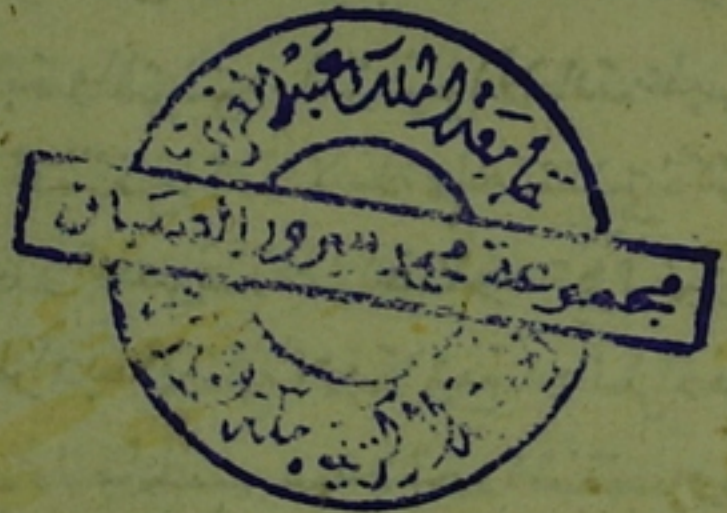 جامعة الملك عبد العزيز
مجموعة محمد سرور الصبان
المركزية